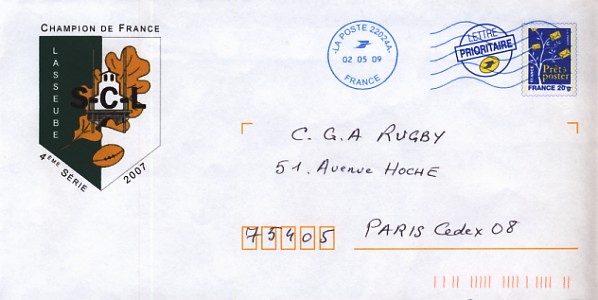 CHAMPION DE FRANCE
LASSEUBE
S-C-L
4ÈME SÉRIE
2007
-LA POSTE 22024A-
02 05 09
FRANCE
LETTRE
PRIORITAIRE
Prêt à
poster
FRANCE 20g
C. G. A RUGBY
51. Avenue HOCHE
75405
PARIS Cedex 08